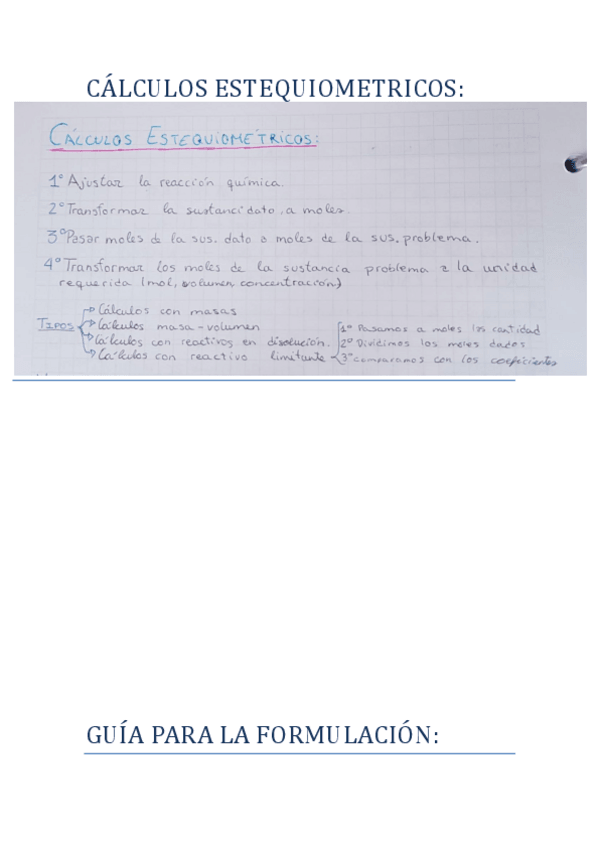 CÁLCULOS ESTEQUIOMETRICOS:
CÁLCULOS ESTEQUIOMÉTRICOS:
1º Ajustar la reacción química.
2º Transformar la sustanci dato, a moles.
3º Pasar moles de la sus. dato a moles de la sus. problema.
4º Transformar los moles de la sustancia problema a la unidad
requerida (mol, volumen, concentración)
TIPOS
Cálculos con masas
Cálculos masa-volumen
Cálculos con reactivos en disolución.
Cálculos con reactivo limitante
1º Pasamos a moles las cantidad
2º Dividimos los moles dados
3º comparamos con los coeficientes
GUÍA PARA LA FORMULACIÓN: